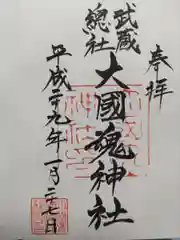 奉拝
武蔵
總社
大國魂神社
平成二十九年一月二十七日